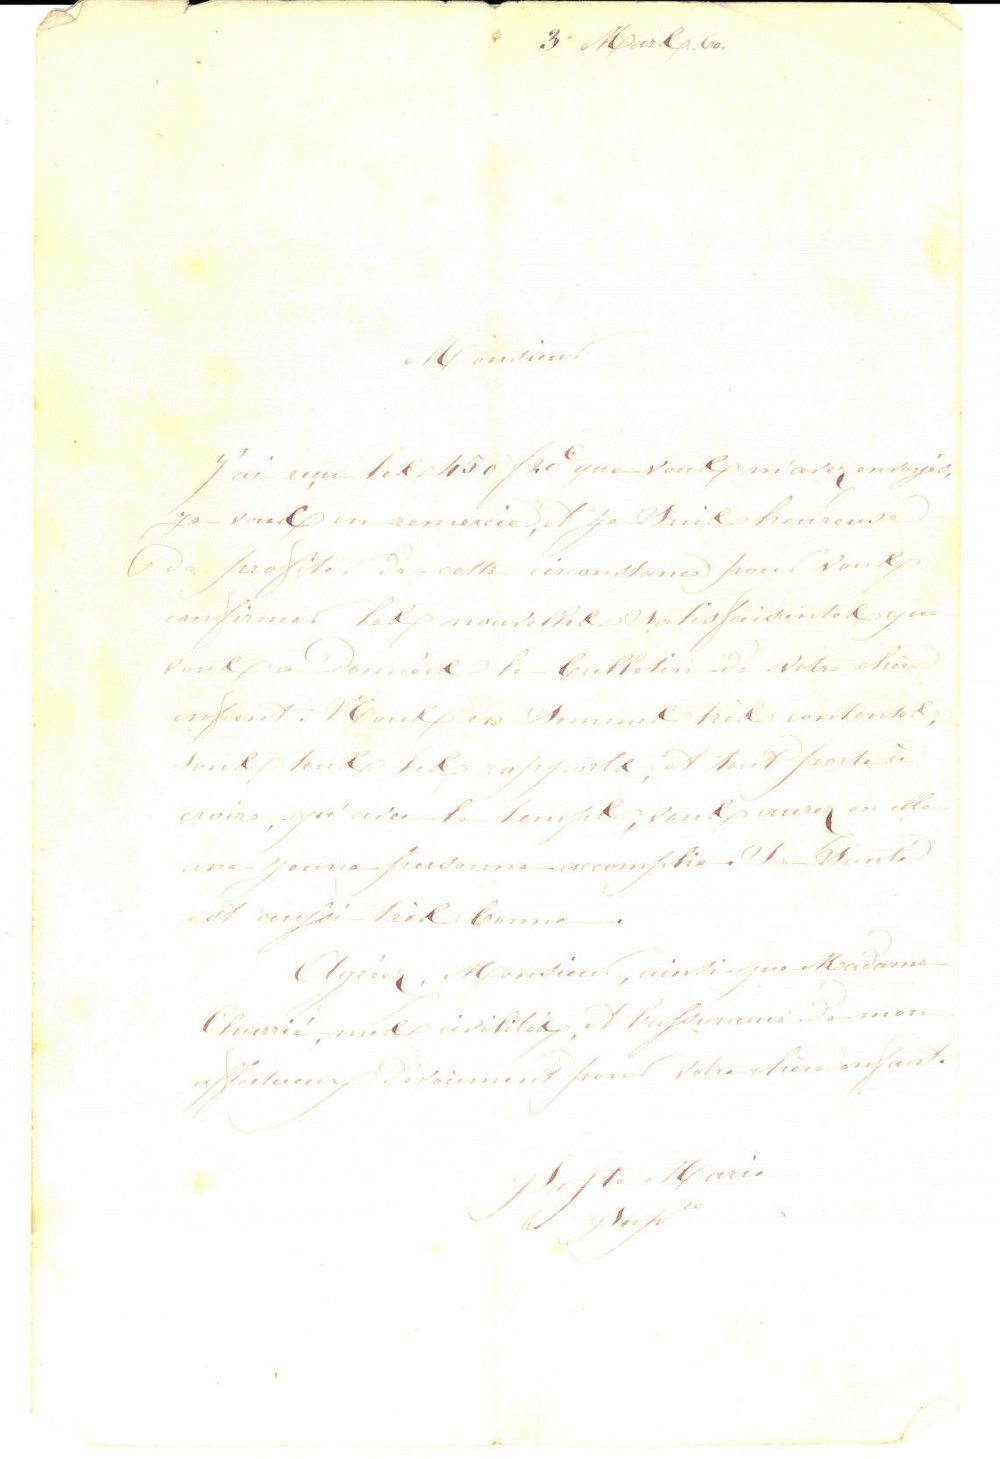 3 Mars. 60.
Monsieur
J'ai reçu les 450 f 20 c que vous m'avez envoyés,
je vous en remercie, et je suis heureuse
de profiter de cette circonstance pour vous
confirmer les nouvelles satisfaisantes que
vous a données le bulletin de votre chère
enfant. Nous en sommes très contentes,
sous tous les rapports, et tout porte à
croire, qu'avec le temps, vous aurez en elle
une jeune personne accomplie. Sa santé
est aussi très bonne.
Agréez, Monsieur, ainsi que Madame
Charrié, mes civilités, et l'assurance de mon
affectueux dévoûment pour votre chère enfant.
Marie
Sup re